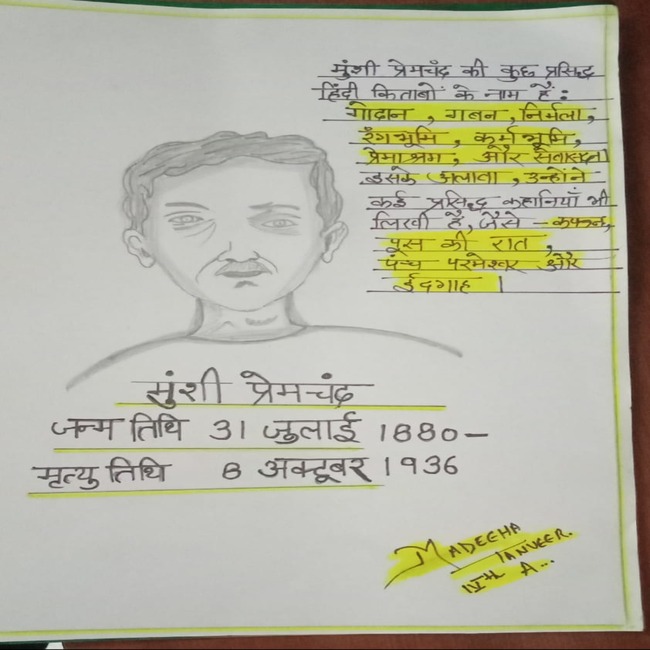 मुंशी प्रेमचंद्र की कुछ प्रसिद्ध
हिंदी किताबों के नाम हैं:
गोदान, गबन, निर्मला,
रंगभूमि, कर्मभूमि,
प्रेमाश्रम, और सेवासदन।
इसके अलावा, उन्होंने
कई प्रसिद्ध कहानियाँ भी
लिखी है, जैसे - कफन,
पूस की रात,
पंच परमेश्वर और
ईदगाह।
मुंशी प्रेमचंद्र
जन्म तिथि 31 जुलाई 1880-
मृत्यु तिथि 8 अक्टूबर 1936
MADEEHA
TANVEER.
IVth A...